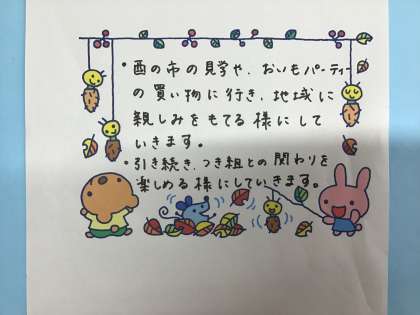 ・酉の市の見学や、おいもパーティー
の買い物に行き、地域に
親しみをもてる様にして
いきます。
・引き続き、つき組との関わりを
楽しめる様にしていきます。